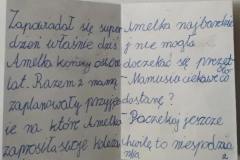 Zapowiadał się super
dzień właśnie dziś
Amelka kończy
lat. Razem z mamą
zaplanowały przyję-
cie na które Amelka
zaprosiła swoje kole
Amelka najbardzie
j nie mogła
doczekać się prezet
- Mamusiu ciekawe co
dostanę?
- Poczekaj jeszcze
chwilę to niespodzia
nka
2